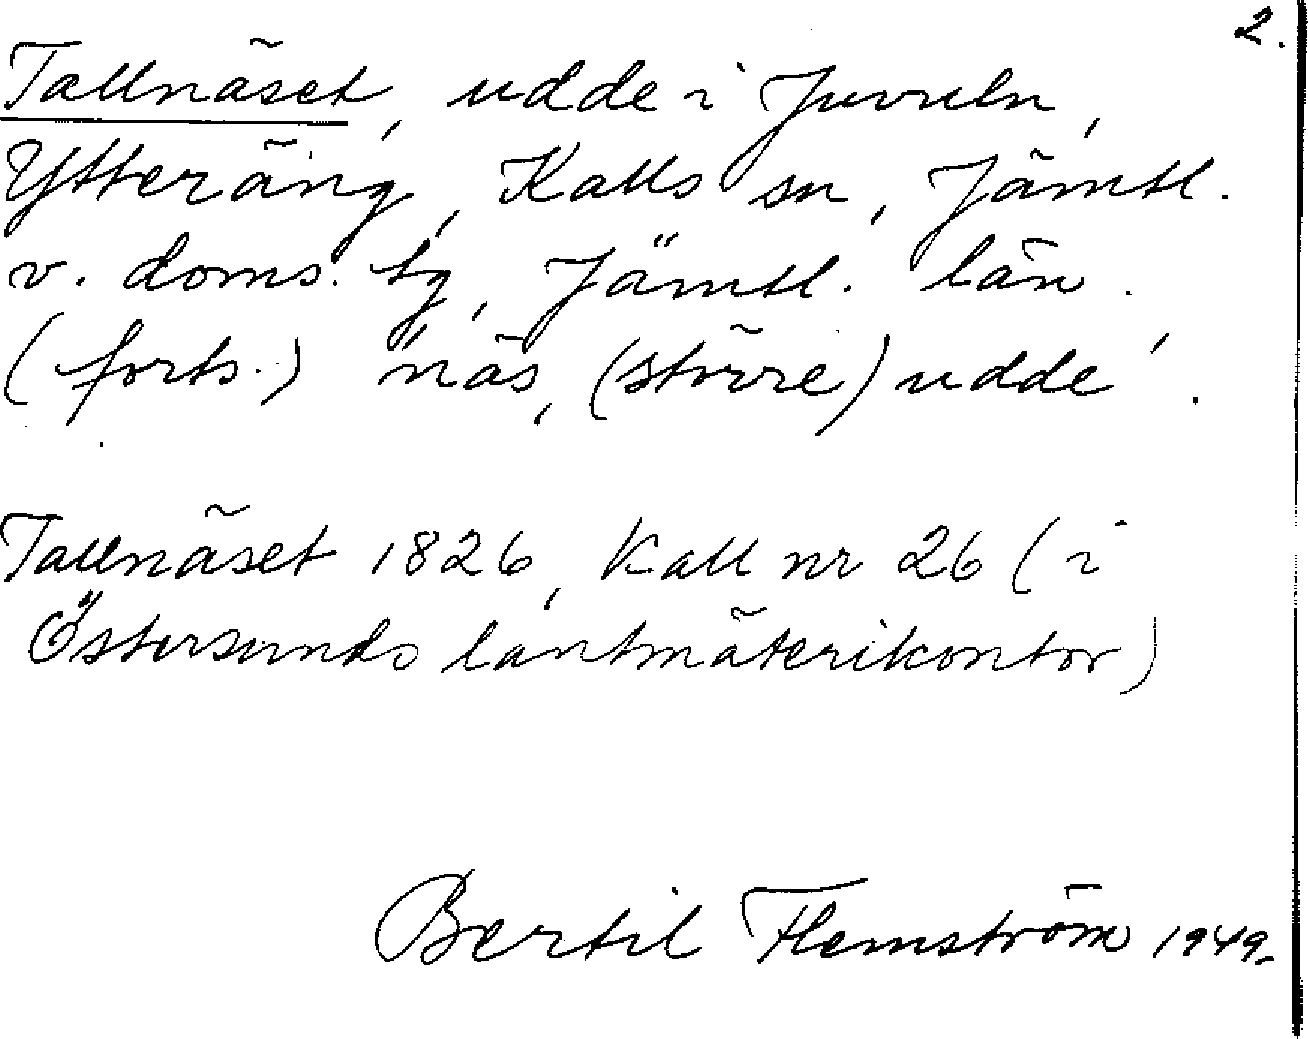 2.
Tallnäset, udde i Juveln,
Ytteräng, Kalls sn, Jämtl.
v. doms. tg, Jämtl. län.
(forts.) 'näs, (större) udde'.
Tallnäset 1826, Kall nr 26 (i
Östersunds lantmäterikontor)
Bertil Flemström 1949.